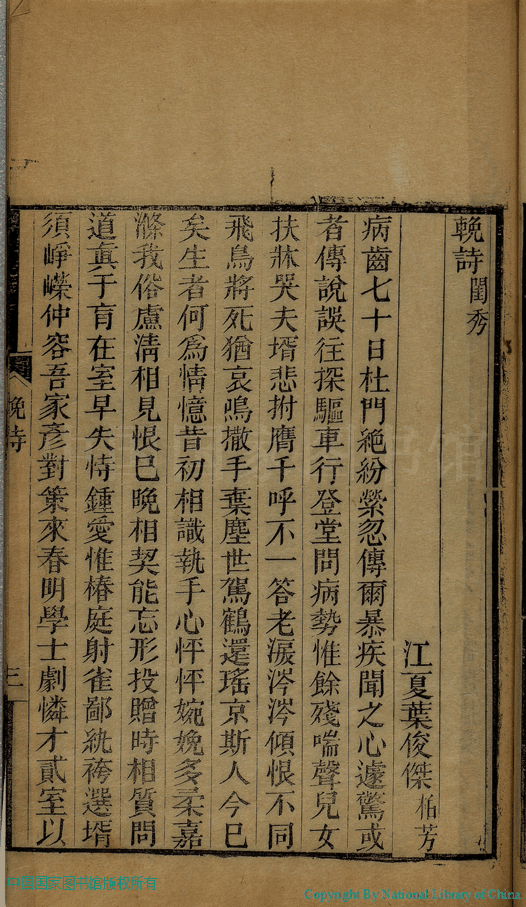 輓詩閨秀
江夏葉俊傑柏芳
病齒七十日杜門絶紛縈忽傳爾暴疾聞之心遽驚或
者傳說誤往探驅車行登堂問病勢惟餘殘喘聲兒女
扶牀哭夫壻悲拊膺千呼不一答老淚涔涔傾恨不同
飛鳥將死猶哀鳴撒手棄塵世駕鶴還瑤京斯人今已
矣生者何為情憶昔初相識執手心怦怦婉娩多柔嘉
滌我俗慮淸相見恨已晚相契能忘形投贈時相質問
道眞于肓在室早失恃鍾愛惟椿庭射雀鄙紈袴選壻
須崢嶸仲容吾家彥對策來春明學士劇憐才貳室以
輓詩
三
中国国家图书馆版权所有
Copyright By National Library of China